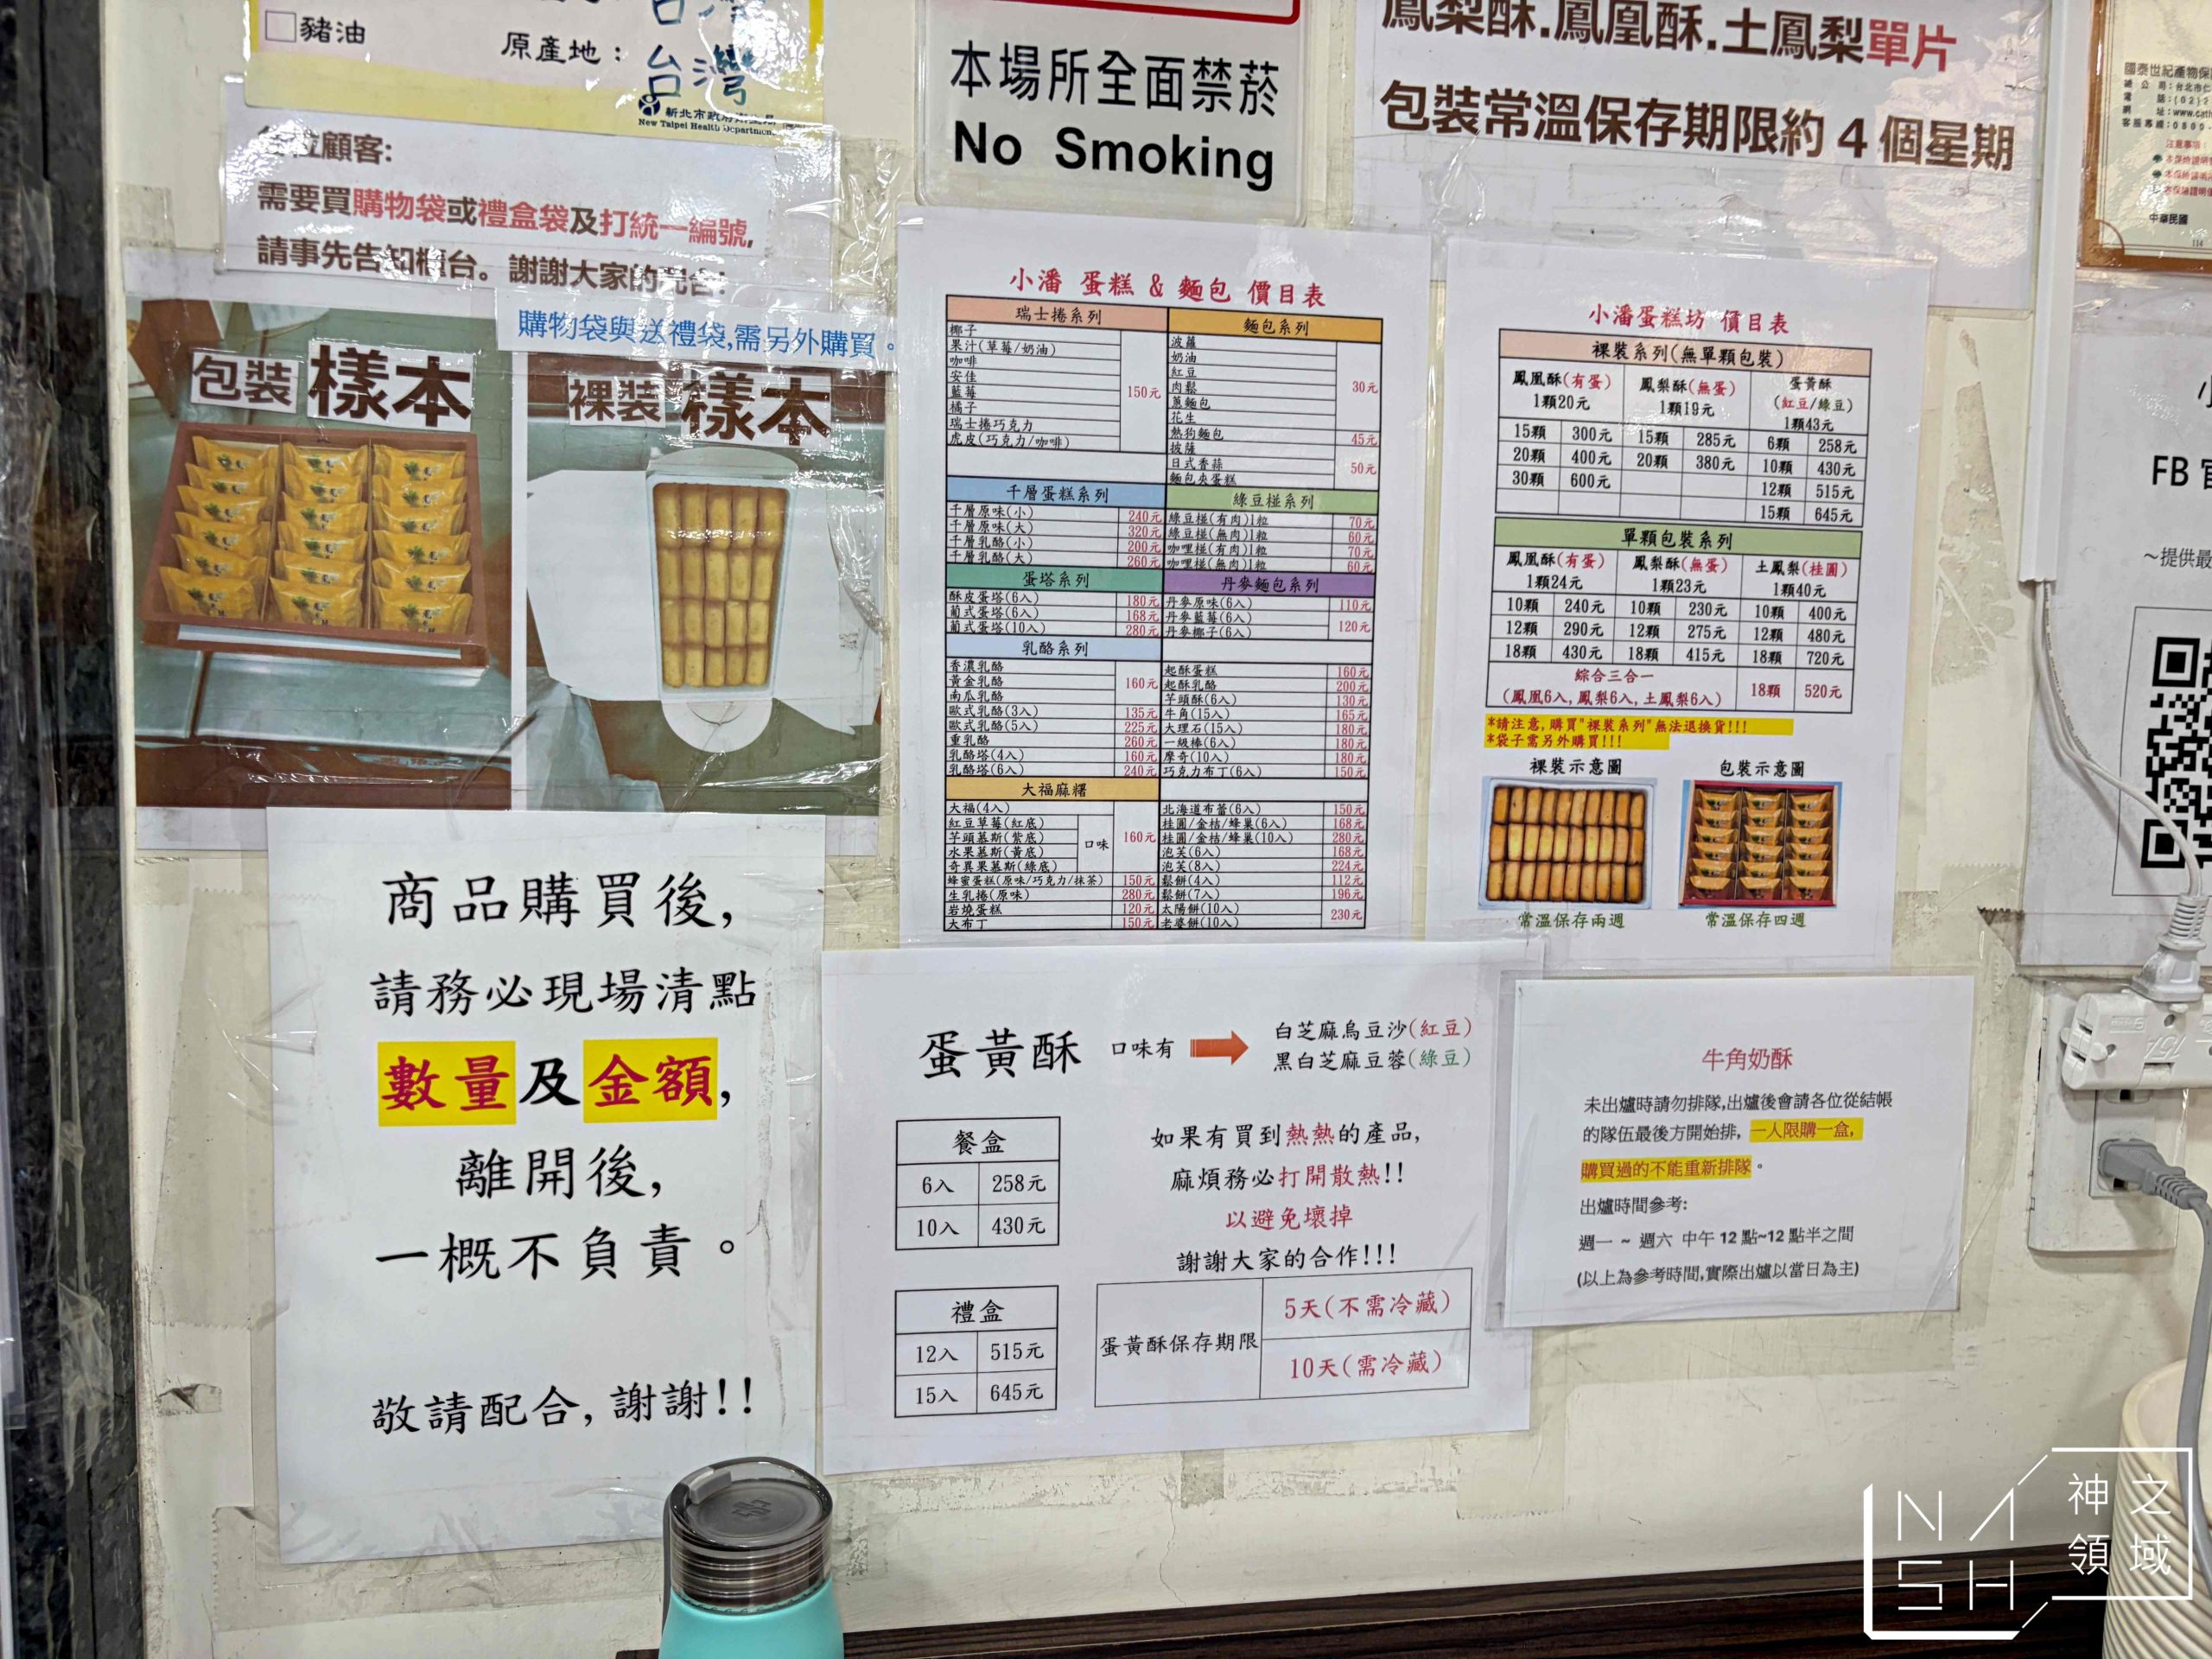 □豬油
原產地：台灣
新北市政府衛生局
New Taipei Health Department
本場所全面禁菸
No Smoking
鳳梨酥.鳳凰酥.土鳳梨單片
包裝常溫保存期限約4個星期
國泰世紀產物保
中華民國
顧客:
需要買購物袋或禮盒袋及打統一編號,
請事先告知櫃台。謝謝大家的配合!
購物袋與送禮袋,需另外購買。
包裝 樣本
裸裝 樣本
小潘 蛋糕 & 麵包 價目表
瑞士捲系列
椰子
果汁(草莓/奶油)
咖啡
安佳
藍莓
橘子
瑞士捲巧克力
虎皮(巧克力/咖啡)
150元
麵包系列
波蘿
奶油
紅豆
肉鬆
蔥麵包
花生
30元
熱狗麵包 45元
披薩
日式香蒜
麵包夾蛋糕
50元
千層蛋糕系列
千層原味(小) 240元
千層原味(大) 320元
千層乳酪(小) 200元
千層乳酪(大) 260元
綠豆椪系列
綠豆椪(有肉)1粒 70元
綠豆椪(無肉)1粒 60元
咖哩椪(有肉)1粒 70元
咖哩椪(無肉)1粒 60元
蛋塔系列
酥皮蛋塔(6入) 180元
葡式蛋塔(6入) 168元
葡式蛋塔(10入) 280元
丹麥麵包系列
丹麥原味(6入) 110元
丹麥藍莓(6入)
丹麥椰子(6入)
120元
乳酪系列
香濃乳酪
黃金乳酪
南瓜乳酪
160元
歐式乳酪(3入) 135元
歐式乳酪(5入) 225元
重乳酪 260元
乳酪塔(4入) 160元
乳酪塔(6入) 240元
起酥蛋糕 160元
起酥乳酪 200元
芋頭酥(6入) 130元
牛角(15入) 165元
大理石(15入) 180元
一級棒(6入) 180元
摩奇(10入) 180元
巧克力布丁(6入) 150元
大福麻糬
大福(4入)
紅豆草莓(紅底)
芋頭慕斯(紫底)
水果慕斯(黃底)
奇異果慕斯(綠底)
口味
160元
蜂蜜蛋糕(原味/巧克力/抹茶) 150元
生乳捲(原味) 280元
岩燒蛋糕 120元
大布丁 150元
北海道布蕾(6入) 150元
桂圓/金桔/蜂巢(6入) 168元
桂圓/金桔/蜂巢(10入) 280元
泡芙(6入) 168元
泡芙(8入) 224元
鬆餅(4入) 112元
鬆餅(7入) 196元
太陽餅(10入)
老婆餅(10入)
230元
小潘蛋糕坊 價目表
裸裝系列(無單顆包裝)
鳳凰酥(有蛋) 鳳梨酥(無蛋) 蛋黃酥
(紅豆/綠豆)
1顆20元 1顆19元 1顆43元
15顆 300元 15顆 285元 6顆 258元
20顆 400元 20顆 380元 10顆 430元
30顆 600元 12顆 515元
15顆 645元
單顆包裝系列
鳳凰酥(有蛋) 鳳梨酥(無蛋) 土鳳梨(桂圓)
1顆24元 1顆23元 1顆40元
10顆 240元 10顆 230元 10顆 400元
12顆 290元 12顆 275元 12顆 480元
18顆 430元 18顆 415元 18顆 720元
綜合三合一
(鳳凰6入,鳳梨6入,土鳳梨6入) 18顆 520元
*請注意,購買"裸裝系列"無法退換貨!!!
*袋子需另外購買!!!
裸裝示意圖 包裝示意圖
常溫保存兩週 常溫保存四週
FB
~提供最
商品購買後,
請務必現場清點
數量及金額,
離開後,
一概不負責。
敬請配合,謝謝!!
蛋黃酥 口味有
白芝麻烏豆沙(紅豆)
黑白芝麻豆蓉(綠豆)
餐盒
6入 258元
10入 430元
禮盒
12入 515元
15入 645元
如果有買到熱熱的產品,
麻煩務必打開散熱!!
以避免壞掉
謝謝大家的合作!!!
蛋黃酥保存期限
5天(不需冷藏)
10天(需冷藏)
牛角奶酥
未出爐時請勿排隊,出爐後會請各位從結帳
的隊伍最後方開始排,一人限購一盒,
購買過的不能重新排隊。
出爐時間參考:
週一 ~ 週六 中午 12 點~12 點半之間
(以上為參考時間,實際出爐以當日為主)
NASH
神之領域